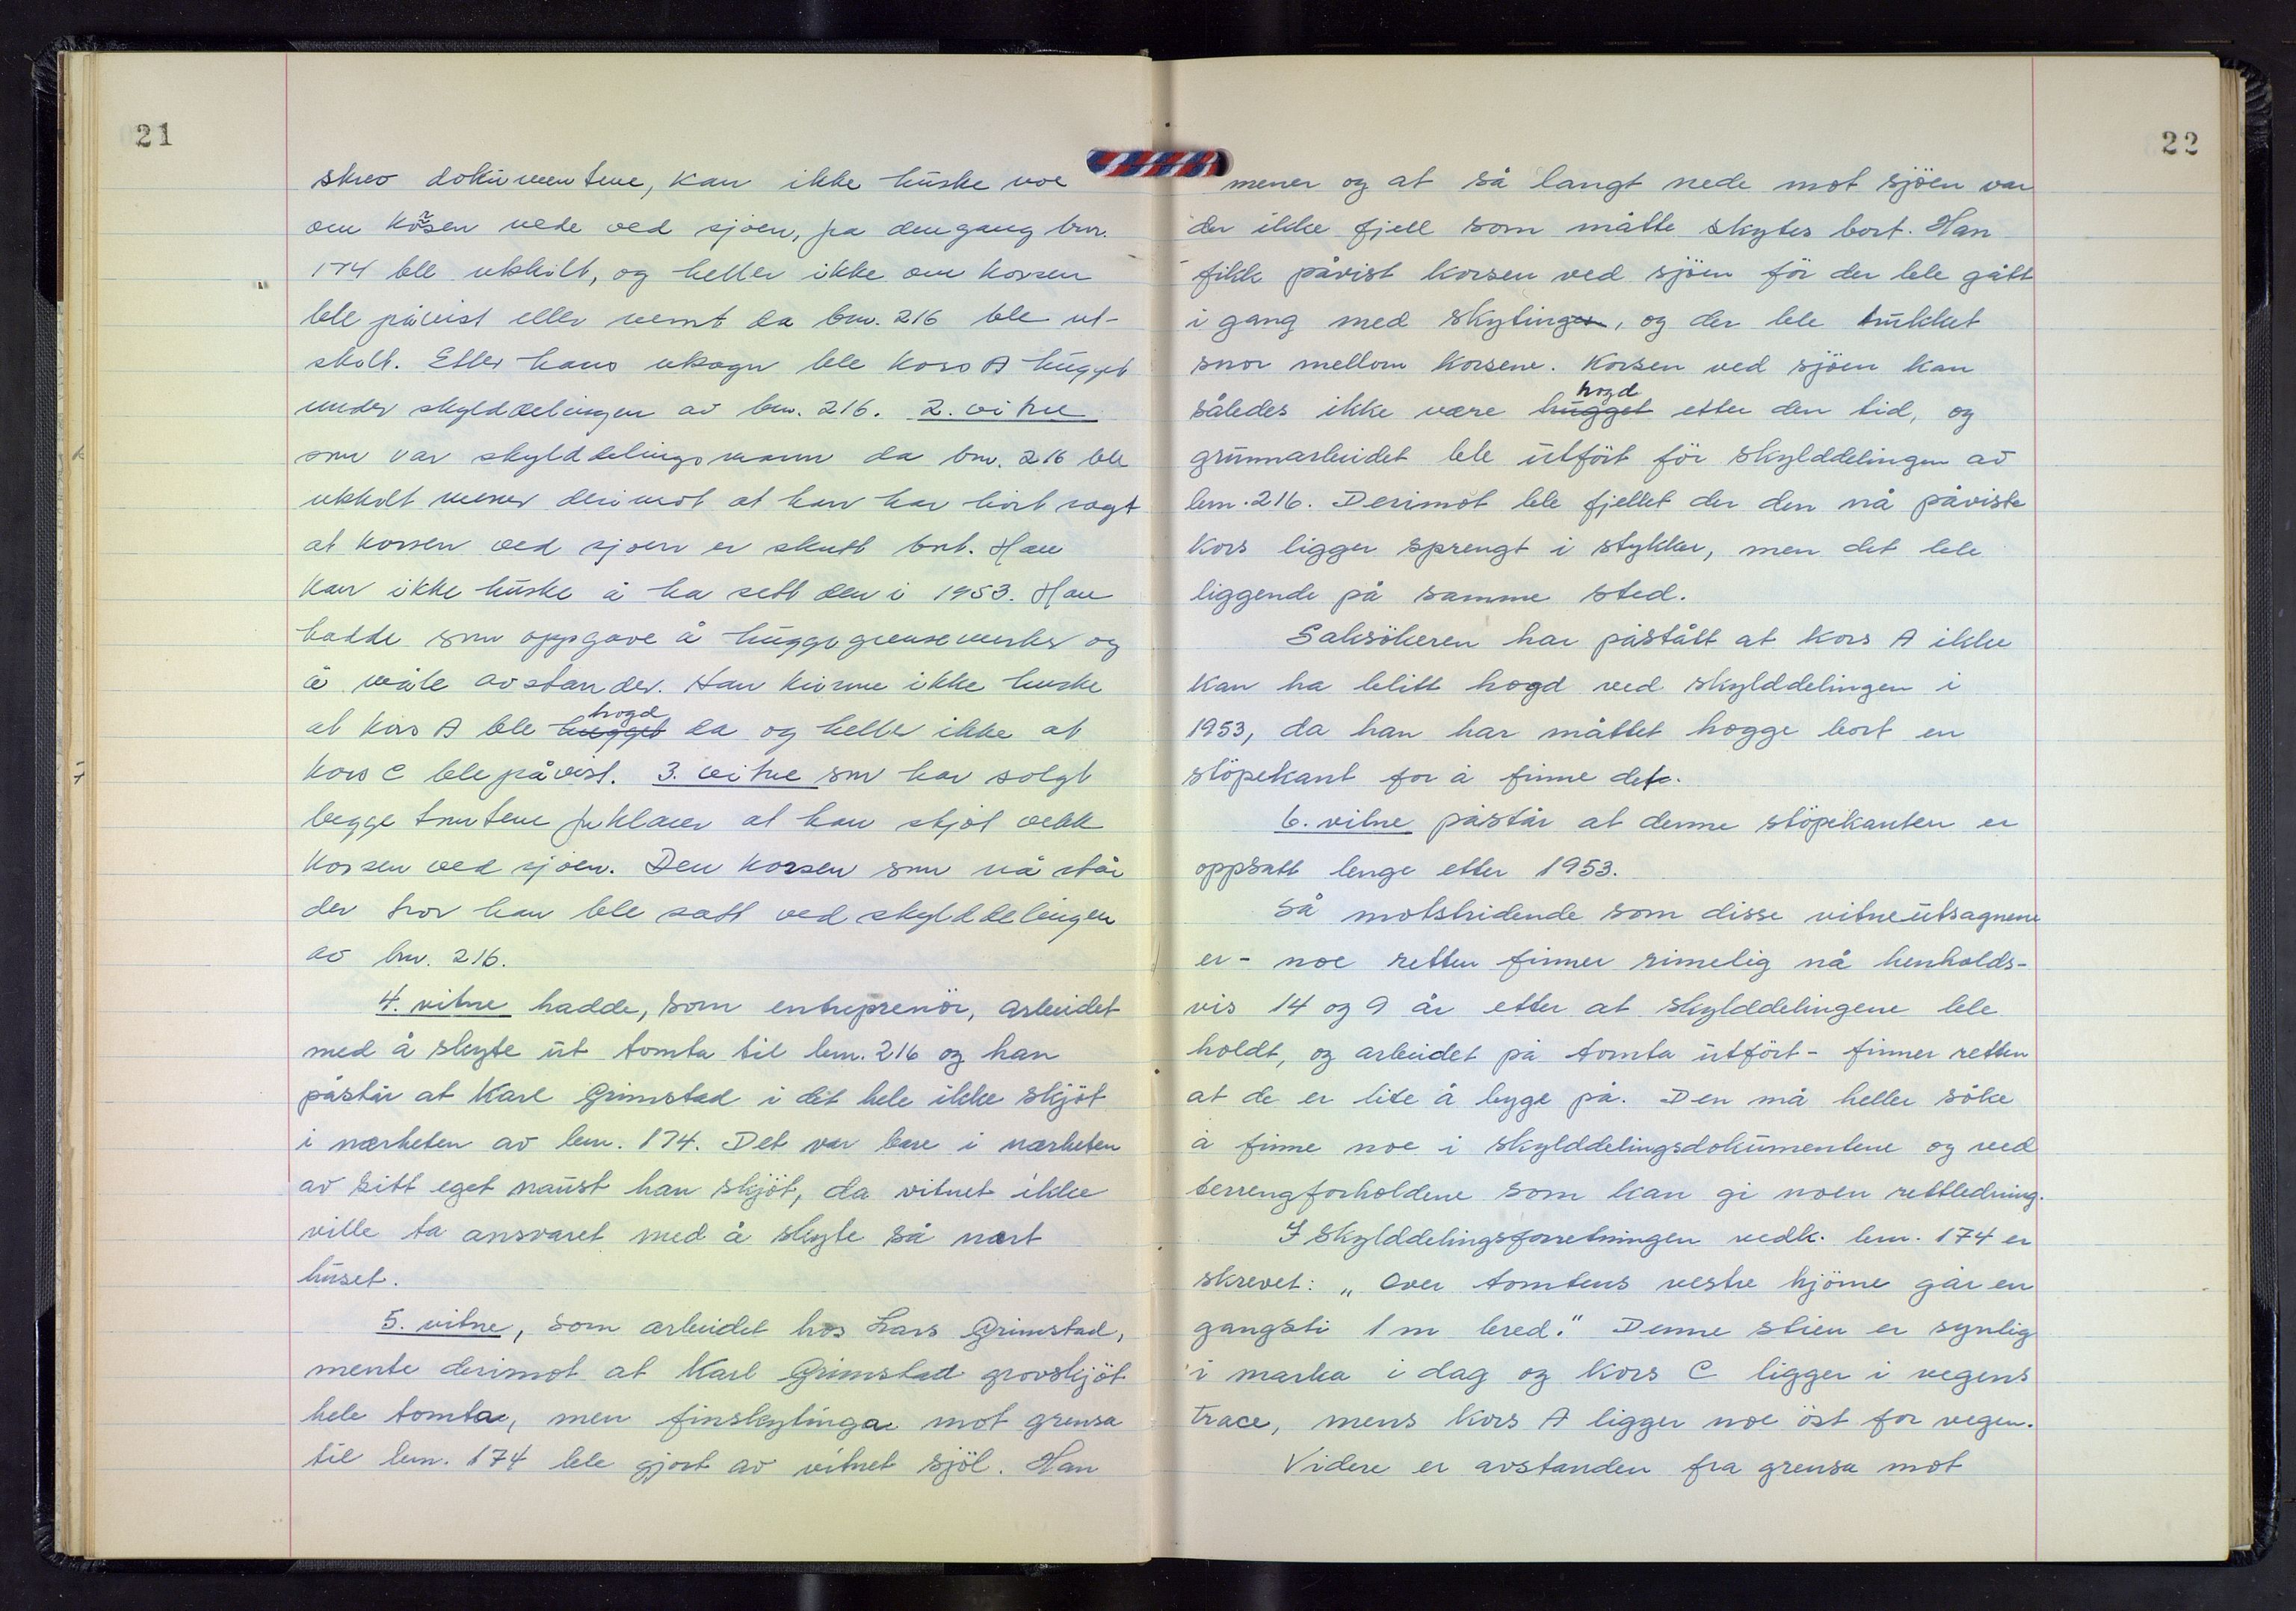 21
skrev dokumentene, kan ikke huske noe
om korsen nede ved sjøen, fra dengang bnr.
174 ble utskilt, og heller ikke om korsen
ble påvist eller nemt da bnr. 216 ble ut-
skilt. Etter hans utsagn ble kors A hugget
under skylddelingen av bnr. 216. 2. vitne
som var skylddelingsmann da bnr. 216 ble
utskilt mener derimot at han har hört sagt
at korsen ved sjøen er skutt bort. Han
kan ikke huske å ha sett den i 1953. Han
hadde som oppgave å hugge grensemerker og
å måle avstander. Han kunne ikke huske
at kors A ble hugget hogd da og heller ikke at
kors C ble påvist. 3. vitne som har solgt
begge tomtene forklarer at han skjöt vekk
korsen ved sjøen. Den korsen som nå står
der tror han ble satt ved skylddelingen
av bnr. 216.
4. vitne hadde, som entreprenör, arbeidet
med å skyte ut tomta til bnr. 216 og han
påstår at Karl Grimstad i det hele ikke skjöt
i nærheten av bnr. 174. Det var bare i nærheten
av sitt eget naust han skjöt, da vitnet ikke
ville ta ansvaret med å skyte så nært
huset.
5. vitne, som arbeidet hos Lars Grimstad,
mente derimot at Karl Grimstad grovskjöt
hele tomta, men finskytinga mot grensa
til bnr. 174 ble gjort av vitnet sjöl. Han
22
mener og at så langt nede mot sjöen var
der ikke fjell som måtte skytes bort. Han
fikk påvist korsen ved sjöen för der ble gått
i gang med skytingen, og der ble trukket
snor mellom korsene. Korsen ved sjöen kan
således ikke være hugget hogd etter den tid, og
grunnarbeidet ble utfört för skylddelingen av
bnr. 216. Derimot ble fjellet der den nå påviste
kors ligger sprengt i stykker, men det ble
liggende på samme sted.
Saksökeren har påstått at kors A ikke
kan ha blitt hogd ved skylddelingen i
1953, da han har måttet hogge bort en
stöpekant for å finne det.
6. vitne påstår at denne stöpekanten er
oppsatt lenge etter 1953.
Så motstridende som disse vitneutsagnene
er - noe retten finner rimelig nå henholds-
vis 14 og 9 år etter at skylddelingene ble
holdt, og arbeidet på tomta utfört - finner retten
at de er lite å byge på. Den må heller söke
å finne noe i skylddelingsdokumentene og ved
terrengforholdene som kan gi noen rettledning.
I skylddelingsforretningen vedk. bnr. 174 er
skrevet: „Over tomtens vestre hjörne går en
gangsti 1 m bred." Denne stien er synlig
i marka i dag og kors C ligger i vegens
trace, mens kors A ligger noe öst for vegen.
Videre er avstanden fra grensa mot